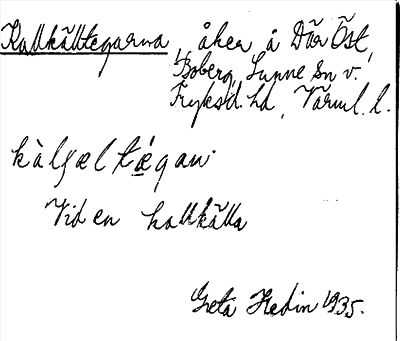 Kallkälltegarna, åker å Där Öst,
Boberg, Sunne Sn v.
Fryksd. hd, Värml. l.
kàlʃæltégan
Vid en kallkälla
Greta Hedin 1935.